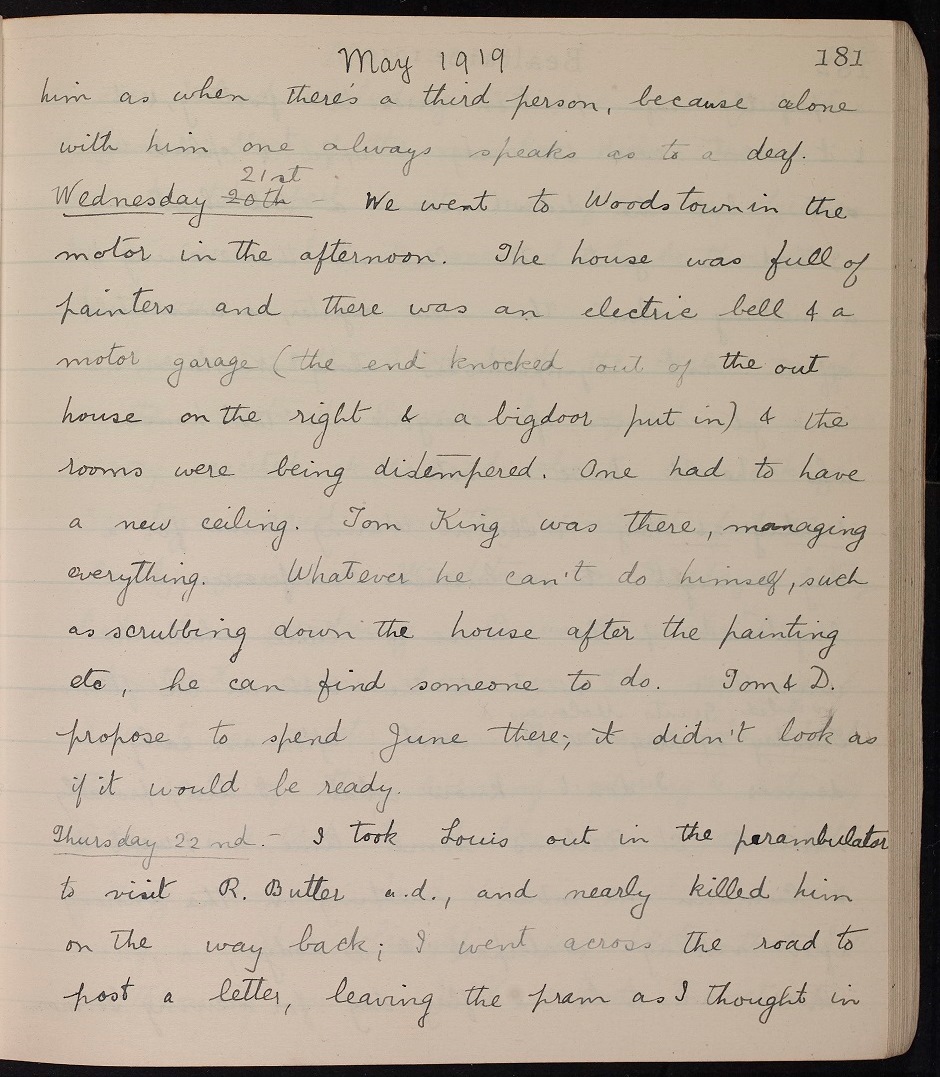 May 1919
181
him as when there's a third person, because alone
with him one always speaks as to a deaf.
21st
Wednesday 20th - We went to Woodstown in the
motor in the afternoon. The house was full of
painters and there was an electric bell & a
motor garage (the end knocked out of the out
house on the right & a big door put in) & the
rooms were being distempered. One had to have
a new ceiling. Tom King was there, managing
everything. Whatever he can't do himself, such
as scrubbing down the house after the painting
etc, he can find someone to do. Tom & D.
propose to spend June there; it didn't look as
if it would be ready.
Thursday 22nd. - I took Louis out in the perambulator
to visit R. Butler a.d., and nearly killed him
on the way back; I went across the road to
post a letter, leaving the pram as I thought in